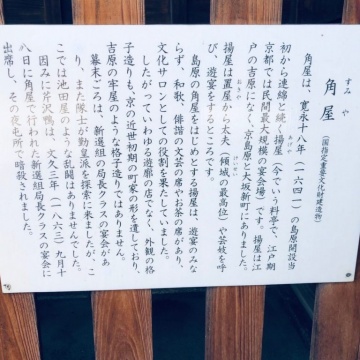 すみや
角屋
（国指定重要文化財建造物）
角屋は、寛永十八年（一六四一）の島原開設当
初から連綿と続く揚屋（今でいう料亭で、江戸期
あげや
京都では民間最大規模の宴会場）です。揚屋は江
戸の吉原になく、京島原と大坂新町にありました。
揚屋は置屋から太夫（傾城の最高位）や芸妓を呼
おきや
けいせい
び、遊宴をするところです。
島原の角屋をはじめとする揚屋は、遊宴のみな
らず、和歌、俳諧の文芸の席やお茶の席があり、
文化サロンとしての役割を果たしていました。
したがっていわゆる遊廓の店でなく、外観の格
子造りも、京の近世初期の町家の形を遺しており、
吉原の牢屋のような格子造りではありません。
幕末ごろは、新選組の局長クラスの宴会があ
り、また隊士が勤皇派を探索に来ましたが、こ
こでは池田屋のような乱闘はありませんでした。
因みに芹沢鴨は、文久三年（一八六三）九月十
八日に角屋で行われた新選組局長クラスの宴会に
出席し、その夜屯所で暗殺されました。